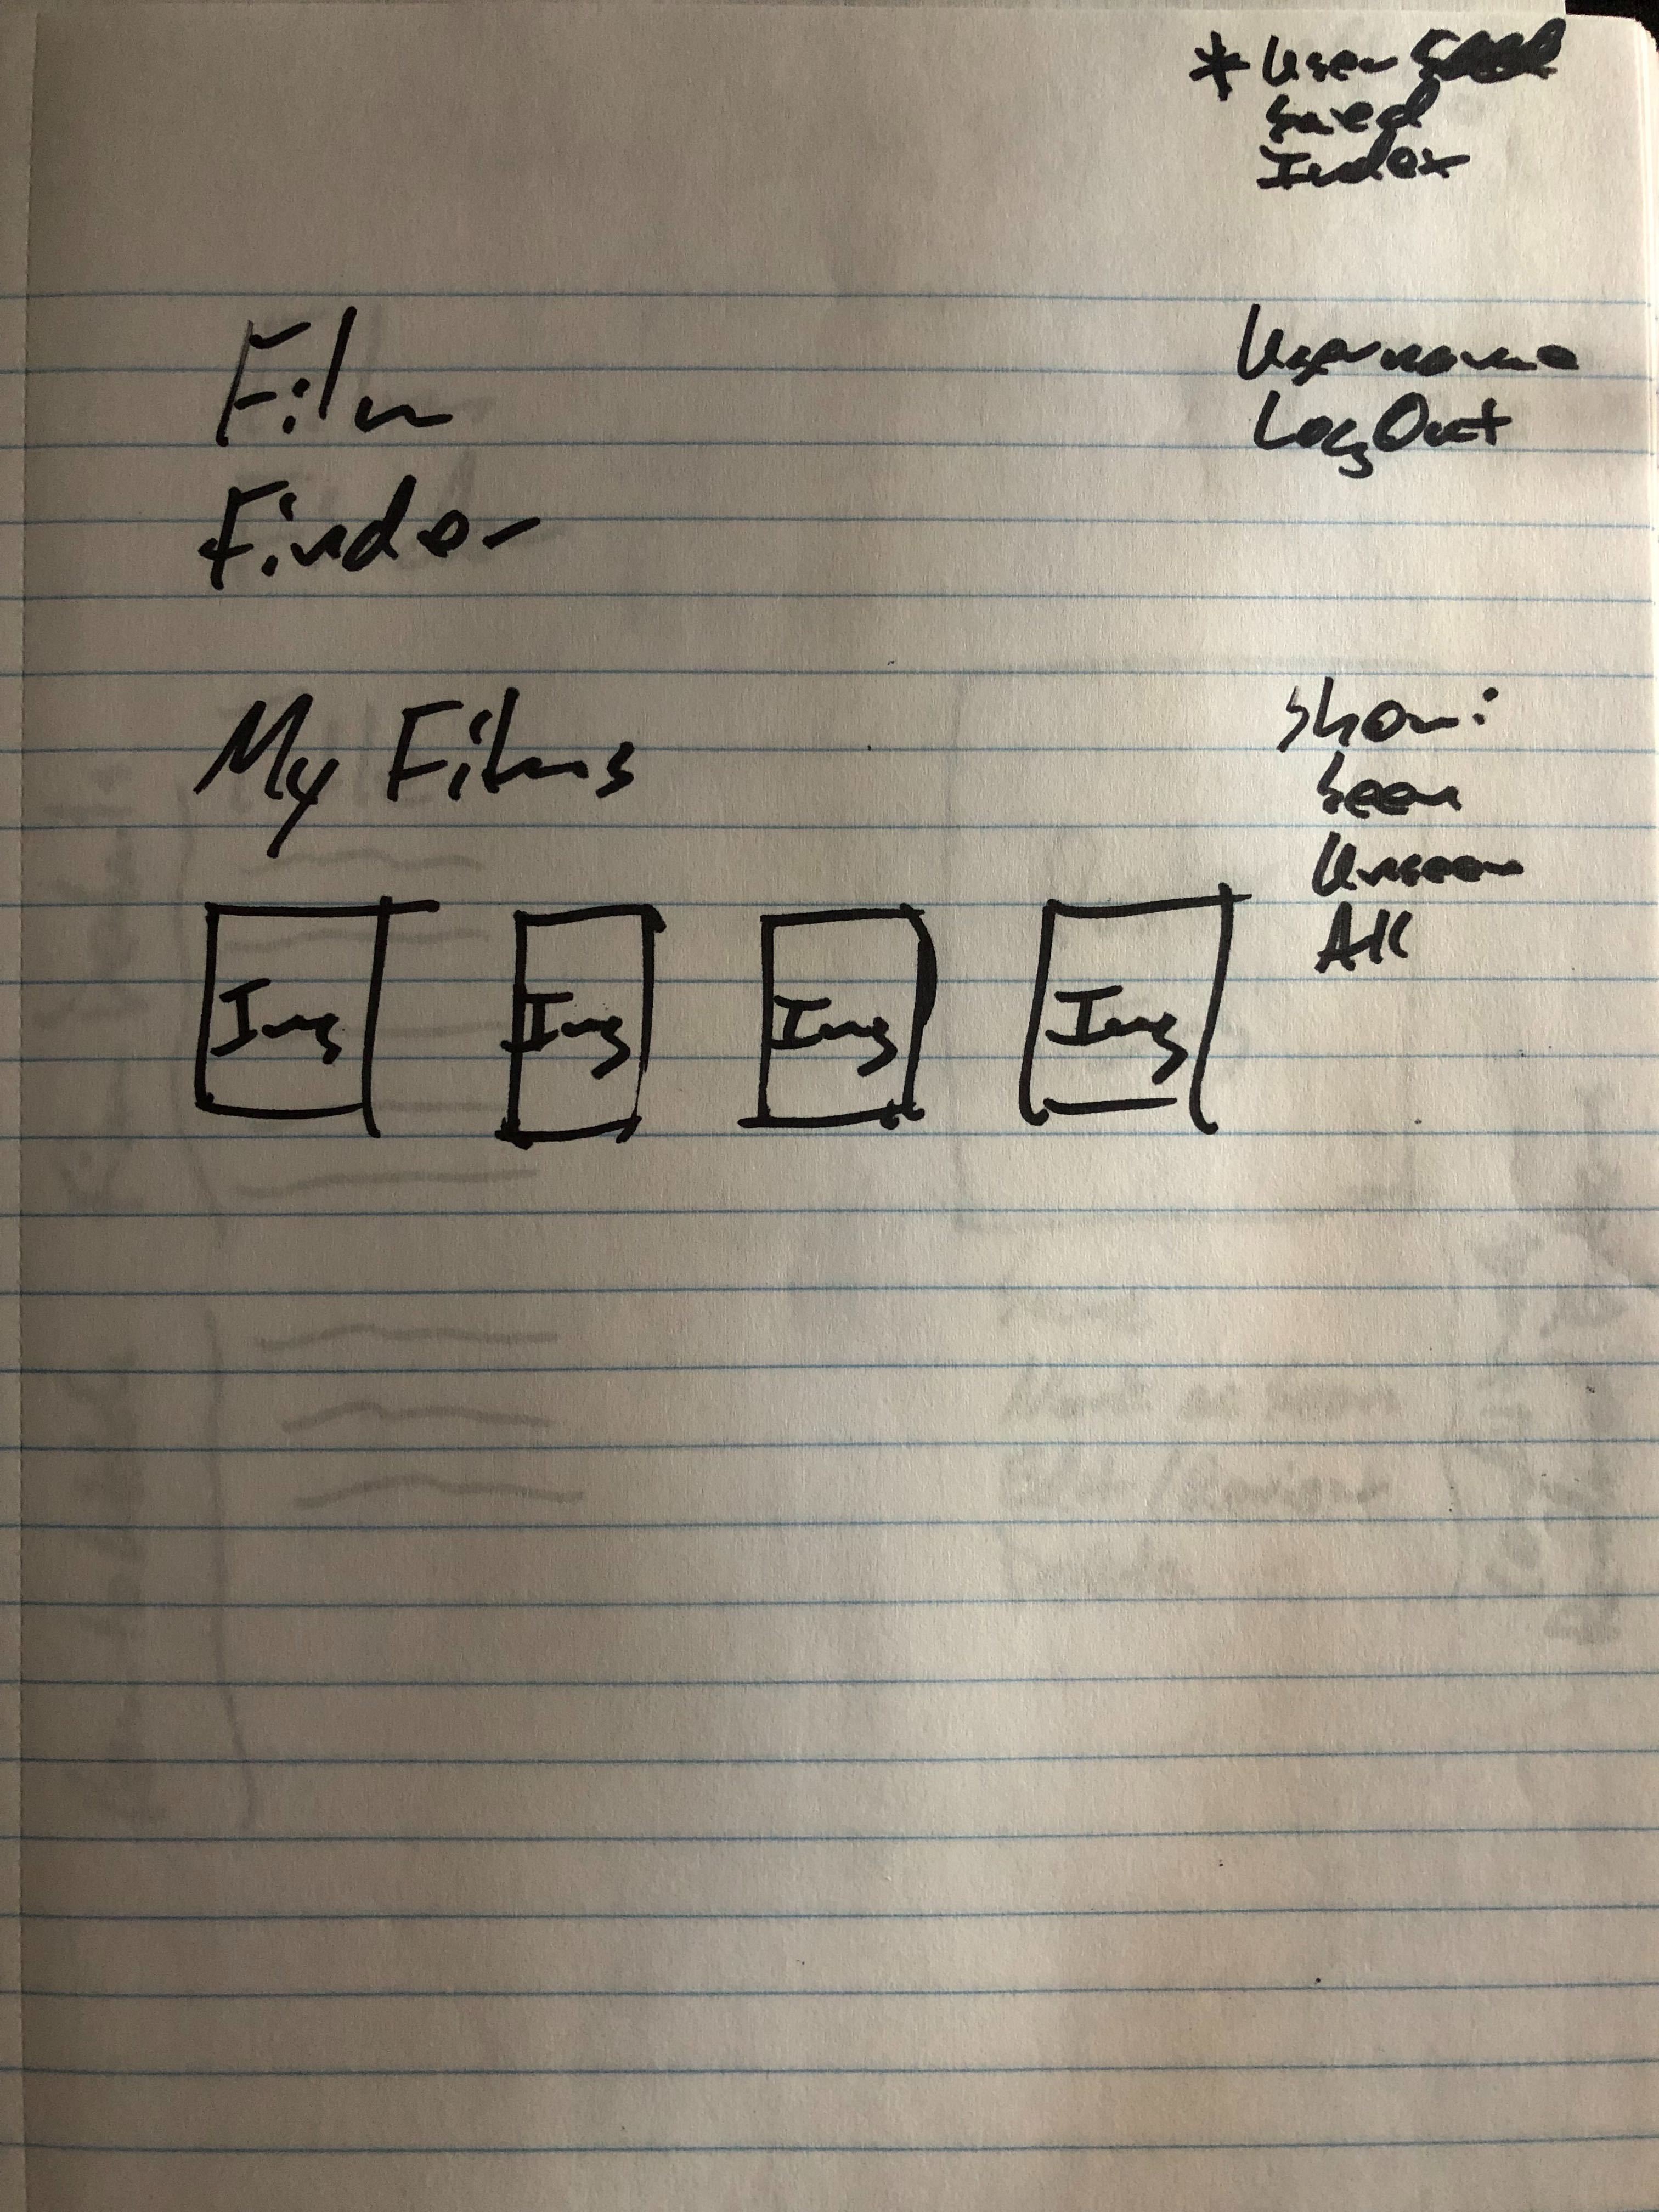 * User
Saved
Index
Film
Finder
Username
LogOut
My Films
Show:
Seen
Unseen
All
Img
Img
Img
Img